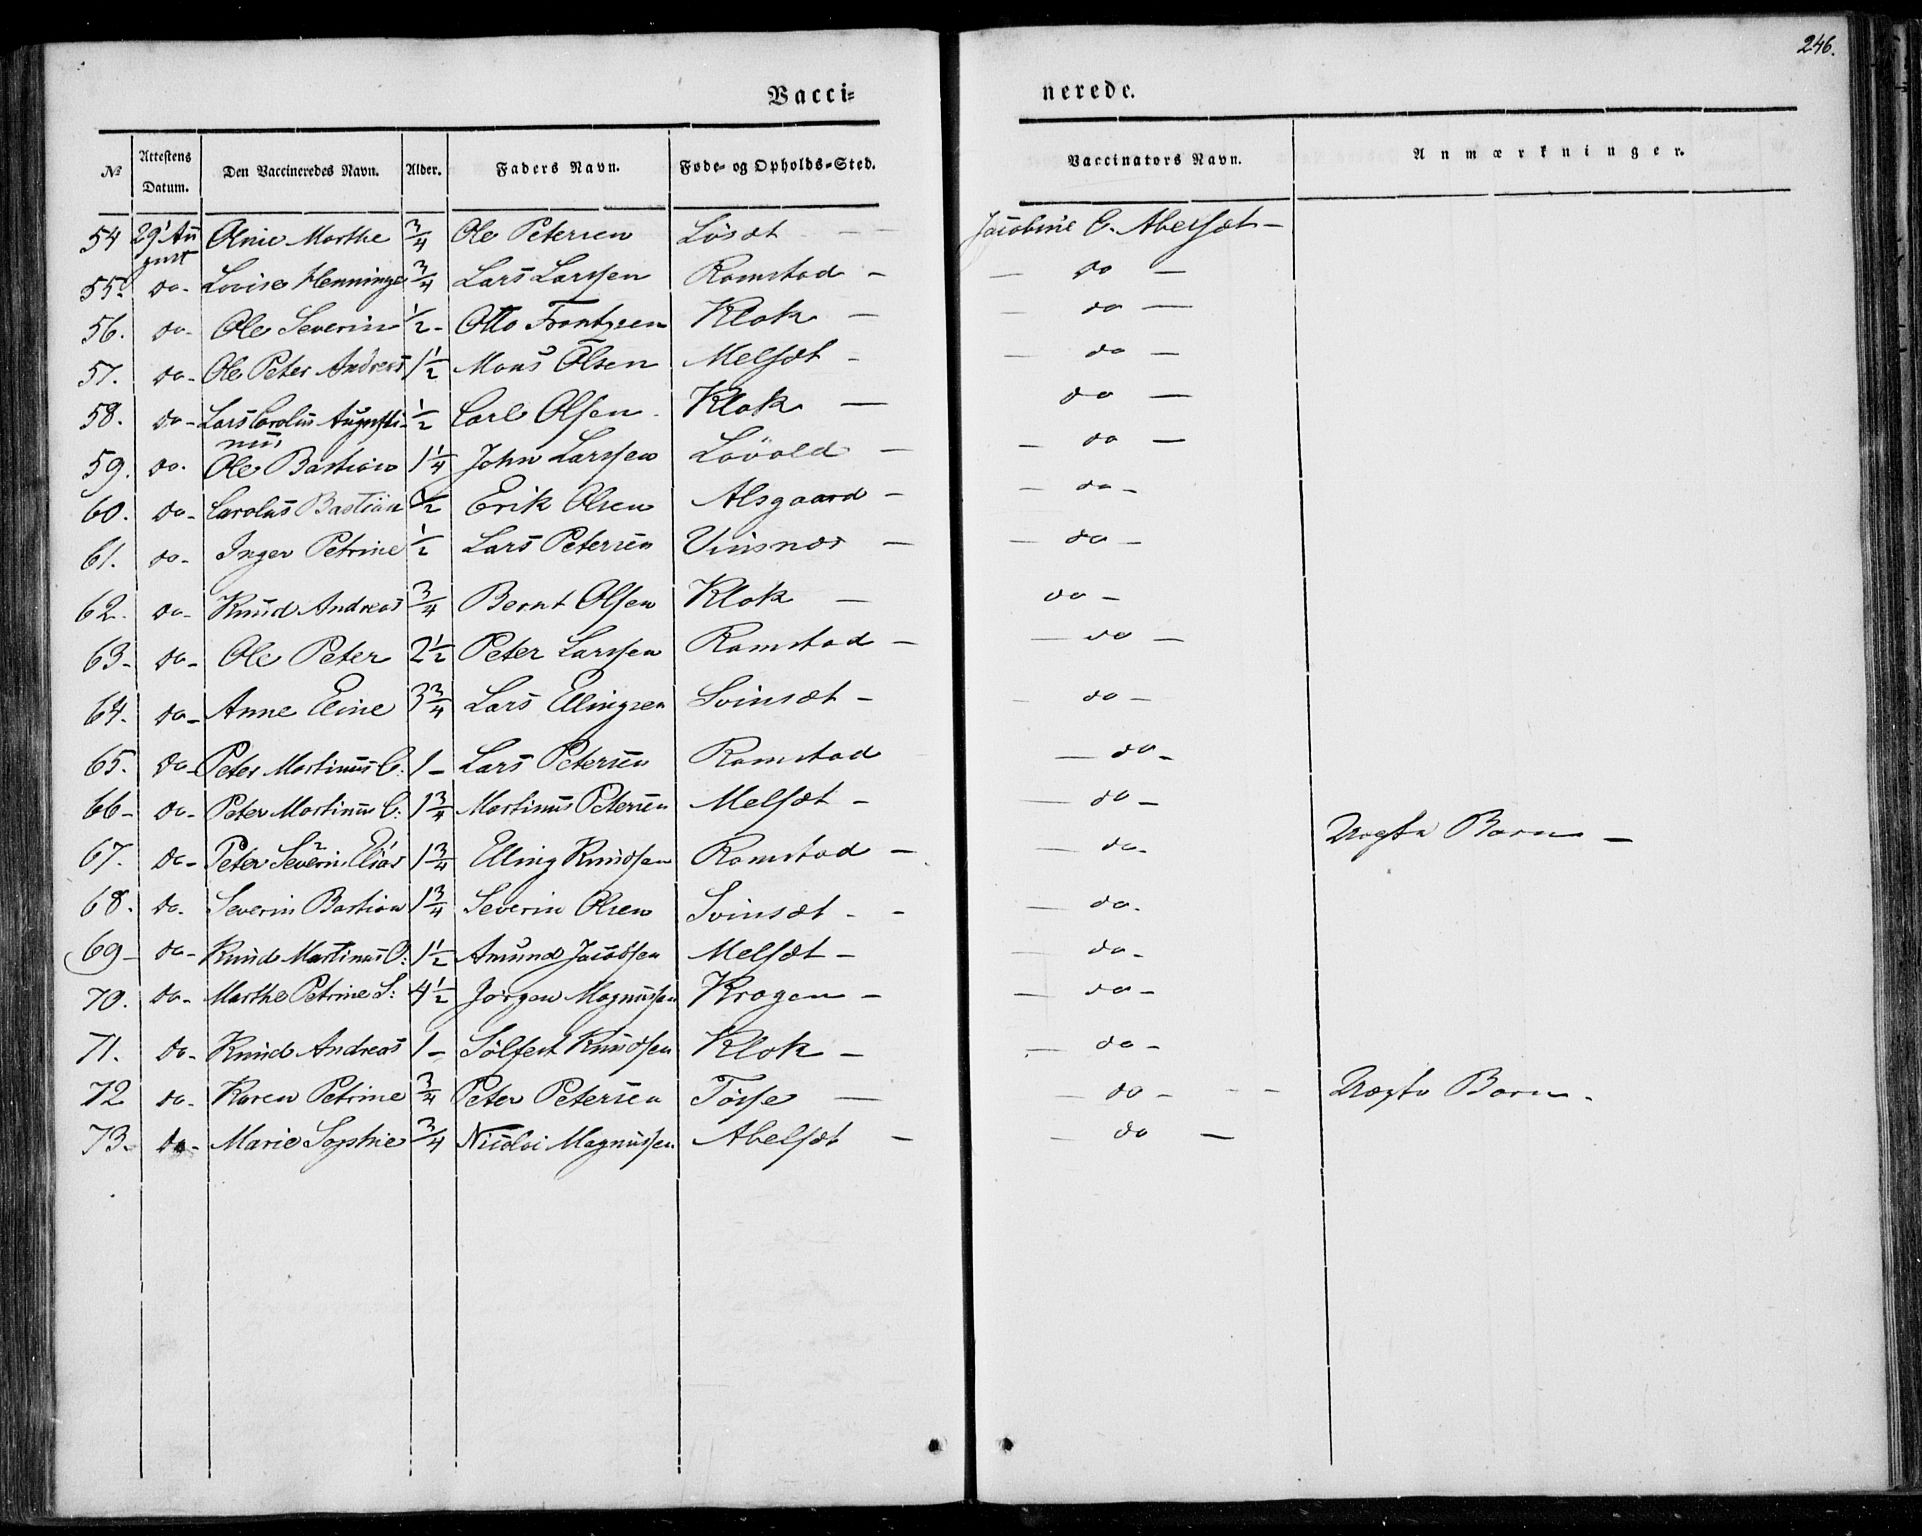 246.
Vacci= nerede.
No Attestens Datum. Den Vaccineredes Navn. Alder. Faders Navn. Føde- og Opholds-Sted. Vaccinators Navn. Anmærkninger.
54 29' Au gust Olnie Marthe 3/4 Ole Petersen Løsæt - - Jacobine C. Abelsæt -
55. do - Lovise Henninge 3/4 Lars Larssen Romstad - - do -
56. do - Ole Severin 1/2 - Otto Frantzsen Klok - - do -
57. do - Ole Peter Andreas 1 1/2 Mons Olsen Melsæt - - do -
58. do - Lars Carolus Augusti- nus 1/2 Carl Olsen - Klok - do -
59. do. Ole Bastian 1 1/4 John Larssen Lovold - - do -
60. do - Carolus Bastian 1/2 Erik Olsen Alsgaard - - do -
61. do - Inger Petrine 1/2 Lars Petersen Vinsnæs - - do -
62. do - Knud Andreas 3/4 Bernt Olsen Klok - do -
63 - do - Ole Peter 2 1/2 Peter Larssen Romstad - - do -
64. do - Anne Eline 3 3/4 Lars Ellingsen Svinsæt - - do -
65. do - Peter Martinus C: 1 - Lars Petersen Romstad - do -
66 - do - Peter Martinus C: 1 3/4 Martinus Petersen Melsæt - - do -
67. do - Peter Severin Elias 1 3/4 Elling Knudsen Romstad - - do - Uægte Barn -
68. do. Severin Bastian 1 3/4 Severin Olsen Svinsæt - - - do.
69 - do - Knud Martinus O: 1 1/2 Amund Jacobsen Melsæt - - do -
70. do - Marthe Petrine S: 4 1/2 Jørgen Magnussen Krogen - - do -
71. do - Knud Andreas 1 - Sølfest Knudsen Klok - - do -
72 do - Karen Petrine 3/4 Peter Petersen Tosse - - do - - - Uægte Barn -
73. do - Marie Sophie 3/4 Nicolai Magnussen Abelsæt - - do -